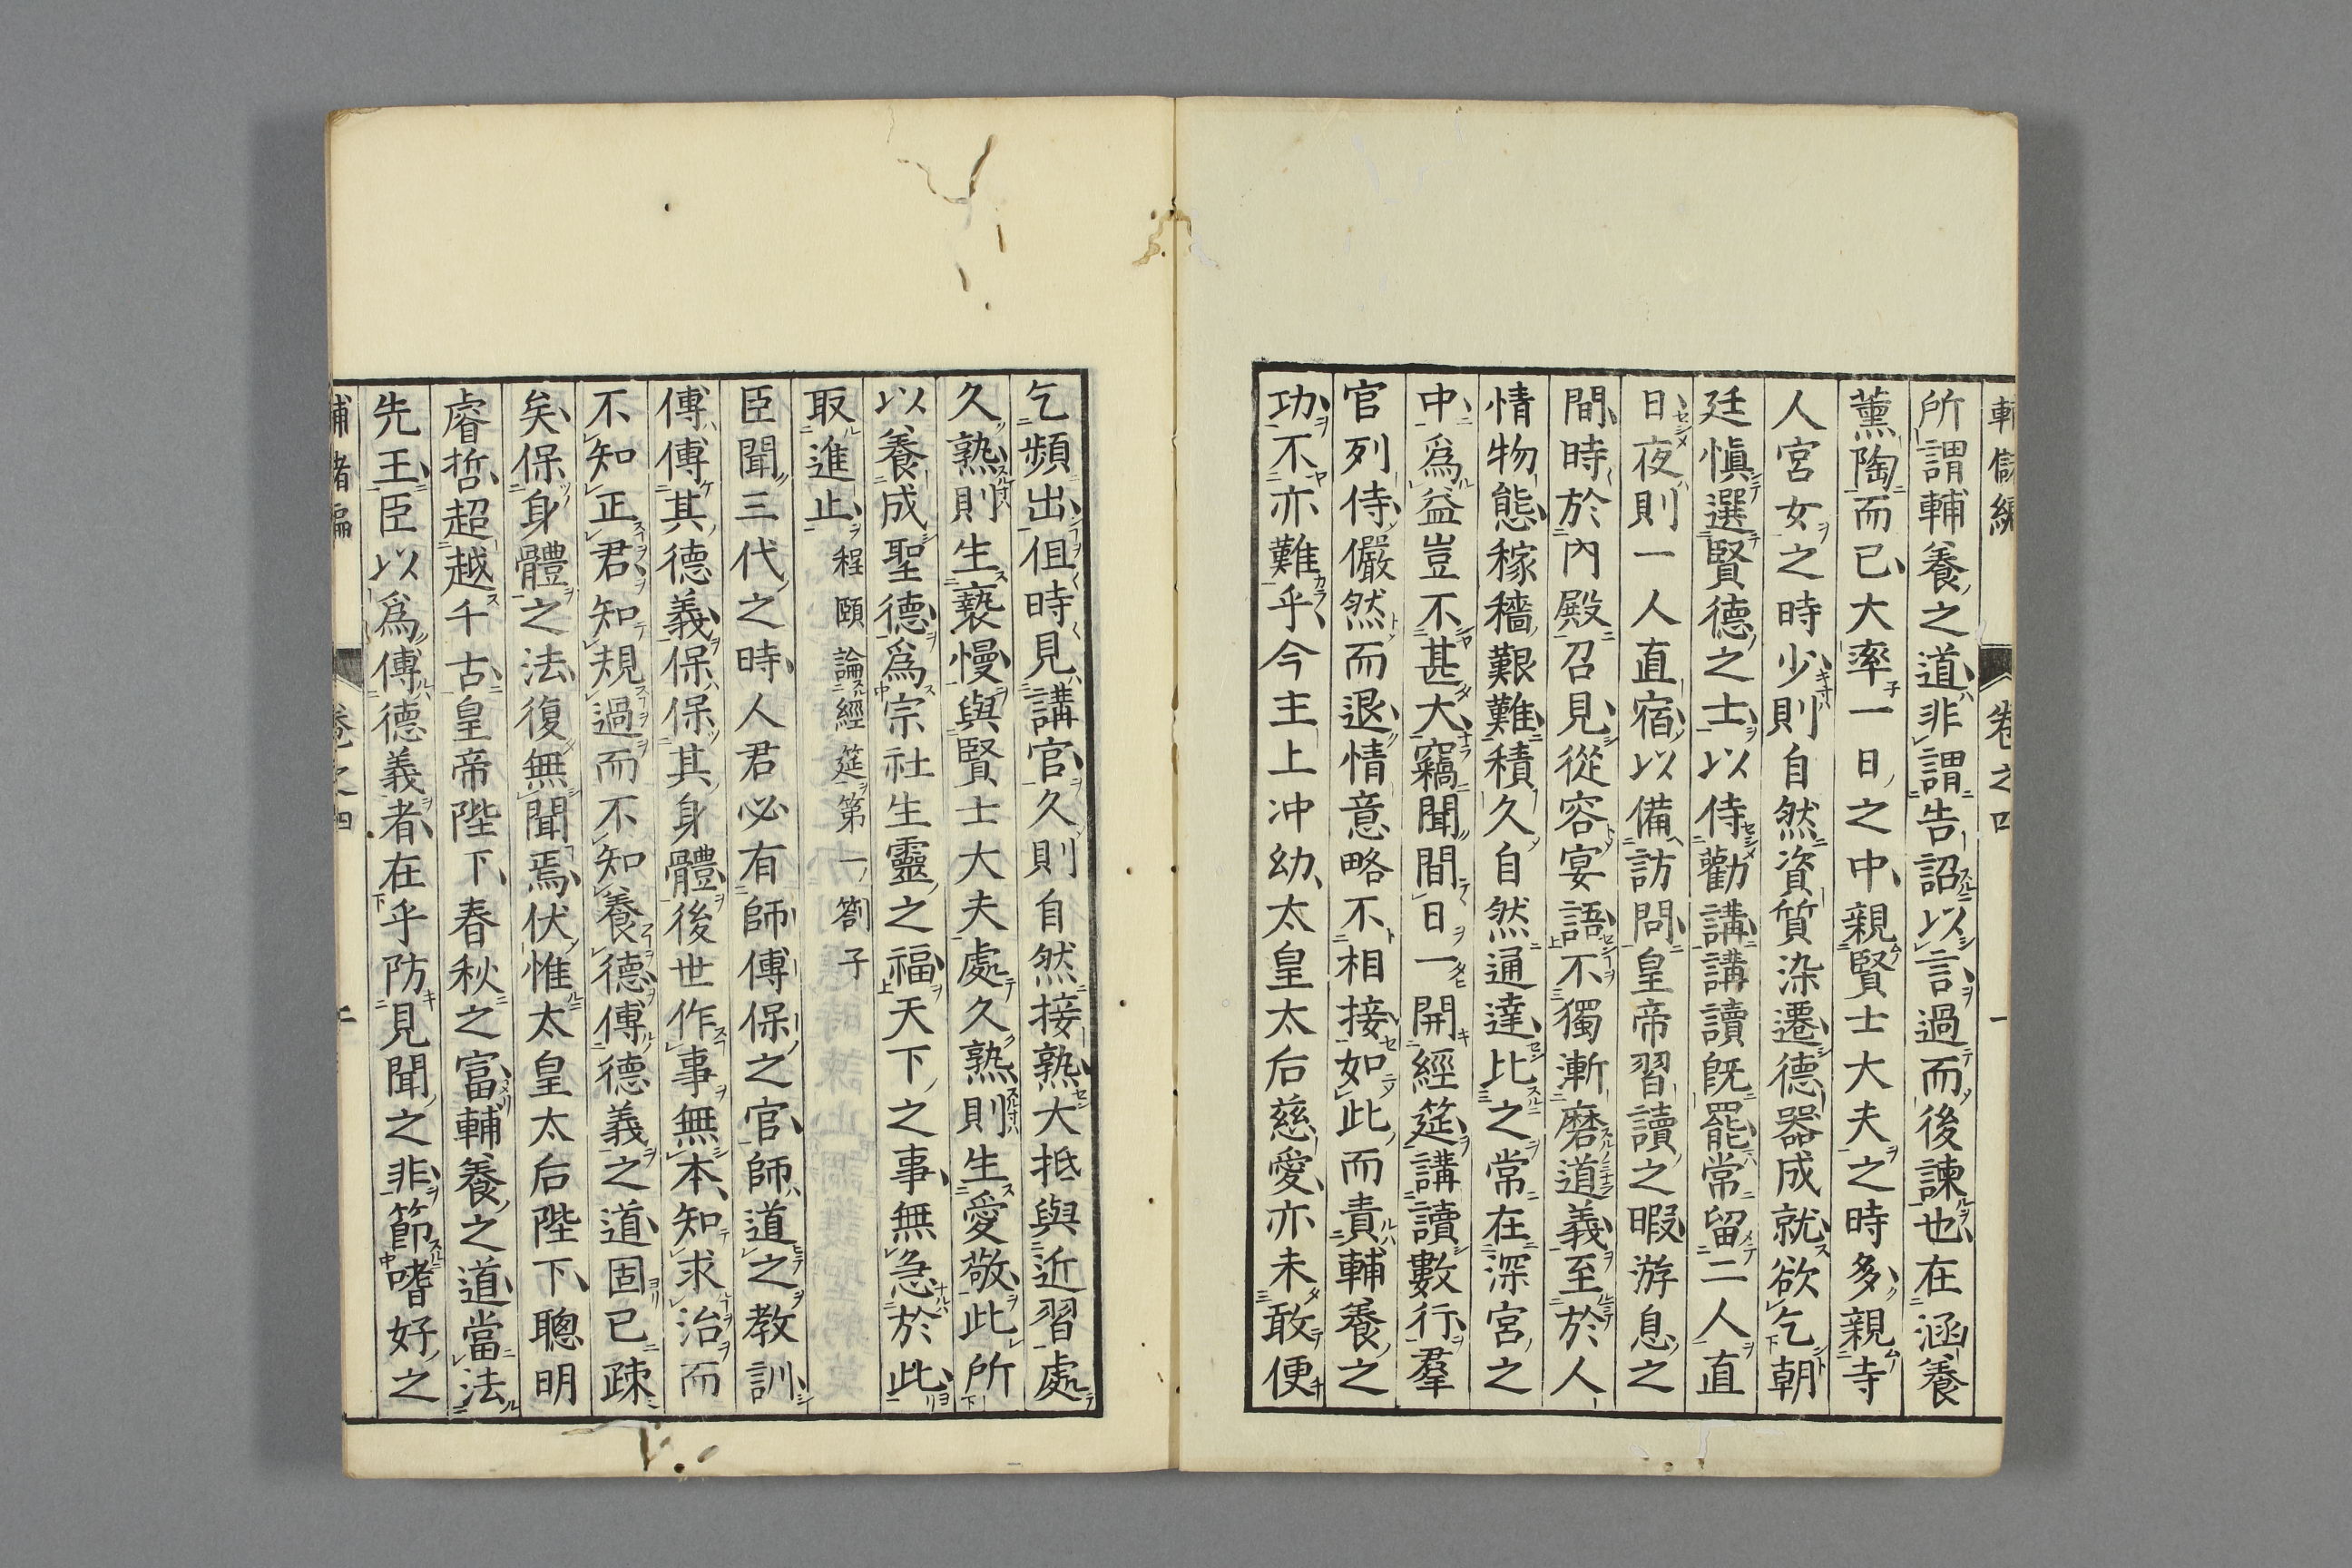 輔儲編　卷之四　一
所謂輔養之道非謂告詔以言過而後諫也在涵養
薰陶而已大率一日之中親賢士大夫之時多親寺
人宮女之時少則自然資質染遷德器成就欲乞朝
廷愼選賢德之士以侍勸講講讀既罷常留二人直
日夜則一人直宿以備訪問皇帝習讀之暇游息之
間時於內殿召見從容宴語不獨漸磨道義至於人
情物態稼穡艱難積久自然通達比之常在深宮之
中爲益豈不甚大竊聞間日一開經筵講讀數行羣
官列侍儼然而退情意略不相接如此而責輔養之
功不亦難乎今主上冲幼太皇太后慈愛亦未敢便
乞頻出但時見講官久則自然接熟大抵與近習處
久熟則生褻慢與賢士大夫處久熟則生愛敬此所
以養成聖德爲宗社生靈之福天下之事無急於此
取進止程頤論經筵第一箚子
臣聞三代之時人君必有師傅保之官師道之教訓
傅傅其德義保保其身體後世作事無本知求治而
不知正君知規過而不知養德傅德義之道固已疎
矣保身體之法復無聞焉伏惟太皇太后陛下聰明
睿哲超越千古皇帝陛下春秋之富輔養之道當法
先王臣以爲傅德義者在乎防見聞之非節嗜好之
輔儲編　卷之四　二